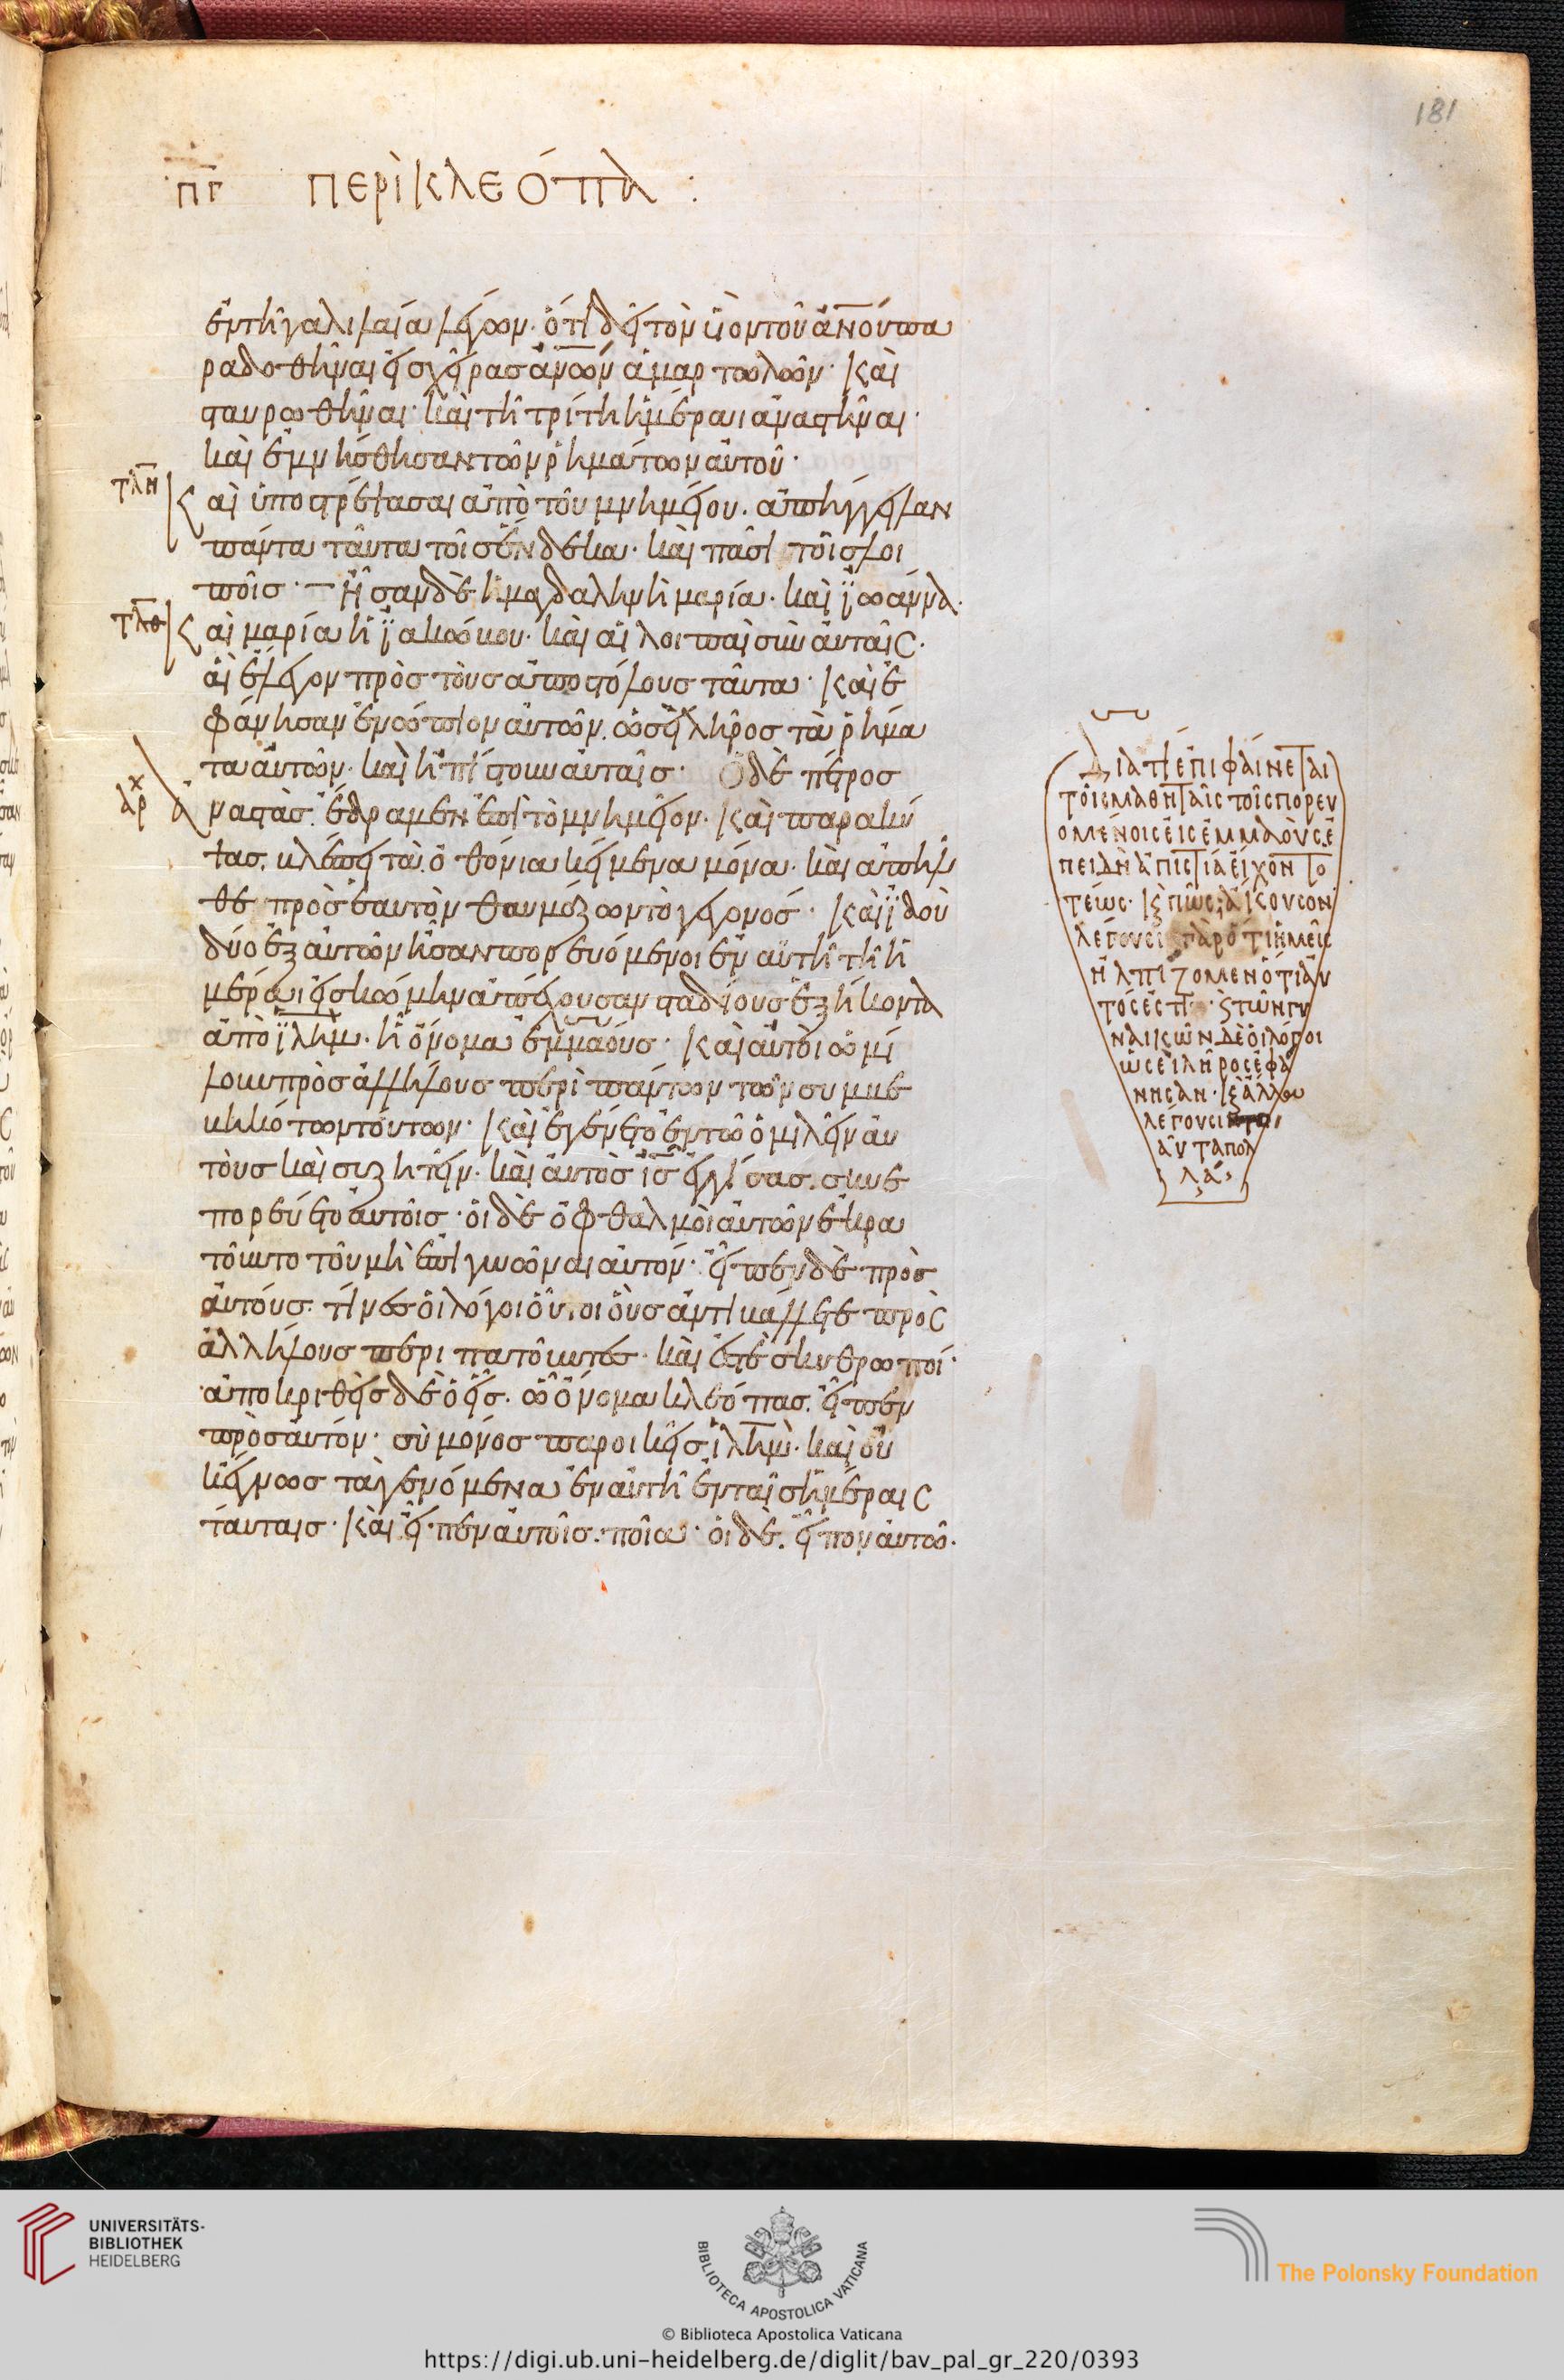 181
πγ περὶ κλεόπα :
ἐν τῇ γαλιλαία λέγων· ὅτι δεῖ τὸν ὑιὸν τοῦ ἀνου πα
ραδοθῆναι εἰς χεῖρας ἀνων ἁμαρτωλῶν· καὶ
σταυρωθῆναι· καὶ τῆ τρίτη ἡμέραι ἀναστῆναι·
καὶ ἐμνήσθησαν τῶν ῥημάτων αὐτοῦ·
τλη κ αὶ ὑποστρέψασαι ἀπὸ τοῦ μνημείου. ἀπήγγειλαν
πάντα ταῦτα τοῖς ἕνδεκα· καὶ πᾶσι τοῖς λοι
ποῖς· ἦσαν δὲ ἡ μαγδαληνὴ μαρία· καὶ ϊωάννα·
τλθ κ αὶ μαρία ἡ ϊακώβου· καὶ αἱ λοιπαὶ σὺν αὐταῖς·
αἳ ἔλεγον πρὸς τοὺς ἀποστόλους ταῦτα· καὶ ἐ
φάνησαν ἐνώπιον αὐτῶν. ὡσεὶ λῆρος τὰ ῥήμα
τα αὐτῶν· καὶ ἠπίστουν αὐταῖς· ὁ δὲ πέτρος
αρχ ἀ ναστὰς. ἔδραμεν ἐπὶ τὸ μνημεῖον· καὶ παρακύ
ψας. βλέπει τὰ ὀθόνια κείμενα μόνα· καὶ ἀπῆλ
θε πρὸς ἑαυτὸν θαυμάζων τὸ γεγονός· καὶ ϊδοὺ
δύο ἐξ αὐτῶν ἦσαν πορευόμενοι ἐν αὐτῆ τῆ ἡ
μέραι εἰς κώμην ἀπέχουσαν σταδίους ἑξήκοντα
ἀπὸ ϊλημ· ἧ ὄνομα ἐμμαούς· καὶ αὐτοὶ ὡμί
λουν πρὸς ἀλλήλους περὶ πάντων τῶν συμβε
βηκότων τούτων· καὶ ἐγένετο ἐν τῶ ὁμιλεῖν αὐ
τοὺς καὶ συζητεῖν· καὶ αὐτὸς ὁ ις ἐγγίσας. συνε
πορεύετο αὐτοῖς· οἱ δὲ ὀφθαλμοὶ αὐτῶν ἐκρα
τοῦντο τοῦ μὴ ἐπιγνῶναι αὐτόν· εἶπεν δὲ πρὸς
αὐτούς· τίνες οἱ λόγοι οὗτοι οὓς ἀντιβάλλετε πρὸς
ἀλλήλους περιπατοῦντες· καὶ ἐστὲ σκυθρωποί·
ἀποκριθεὶς δὲ ὁ εἷς. ὧ ὄνομα κλεόπας. εἶπεν
πρὸς αὐτόν· σὺ μόνος παροικεῖς ϊλημ· καὶ οὐ
κ ἔγνως τὰ γενόμενα ἐν αὐτῆ ἐν ταῖς ἡμέραις
ταύταις· καὶ εἶπεν αὐτοῖς· ποῖα· οἱ δὲ. εἶπον αὐτῶ·
Διατί ἐπιφαίνεται
τοῖς μαθηταῖς τοῖς πορευ
ομένοις εἰς ἐμμαοὺς· ἐ
πειδὴ ἀπιστία εἶχον το
τέως· κ πῶς; ἄκουσον
λέγουσι γὰρ ὅτι ἡμεῖς
ἠλπίζομεν ὅτι αὐ
τός ἐστι· κ τῶν γυ
ναικῶν δὲ οἱ λόγοι
ὡσεὶ λῆρος ἐφά
νησαν· κ ἄλλα
λέγουσι
αὖτα πολ
λά·
UNIVERSITÄTS-
BIBLIOTHEK
HEIDELBERG
BIBLIOTECA APOSTOLICA VATICANA
The Polonsky Foundation
© Biblioteca Apostolica Vaticana
https://digi.ub.uni-heidelberg.de/diglit/bav_pal_gr_220/0393